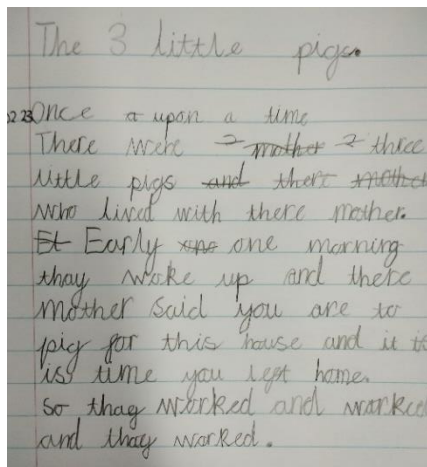 The 3 little pigs.
22 23 Once a upon a time
There were 2 mother 2 three
little pigs and there mother
who lived with there mother.
Et Early one morning
thay woke up and there
mother said you are to
pig for this house and it is
is time you left home.
so thay worked and worked
and thay worked.